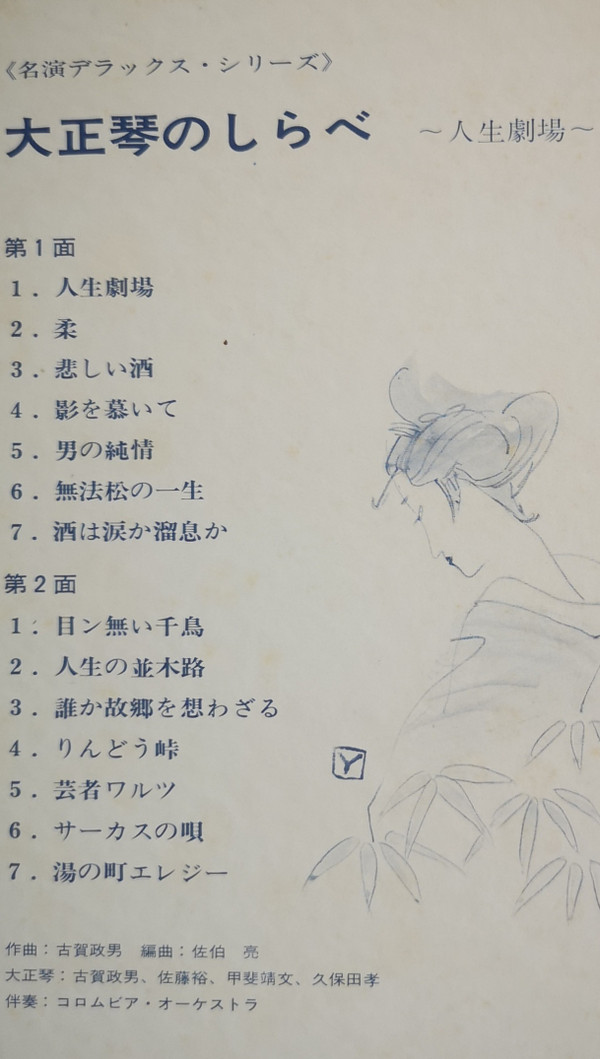 《名演デラックス・シリーズ》
大正琴のしらべ ～人生劇場～
第1面
1．人生劇場
2．柔
3．悲しい酒
4．影を慕いて
5．男の純情
6．無法松の一生
7．酒は涙か溜息か
第2面
1．目ン無い千鳥
2．人生の並木路
3．誰か故郷を想わざる
4．りんどう峠
5．芸者ワルツ
6．サーカスの唄
7．湯の町エレジー
Y
作曲：古賀政男　編曲：佐伯　亮
大正琴：古賀政男、佐藤裕、甲斐靖文、久保田孝
伴奏：コロムビア・オーケストラ